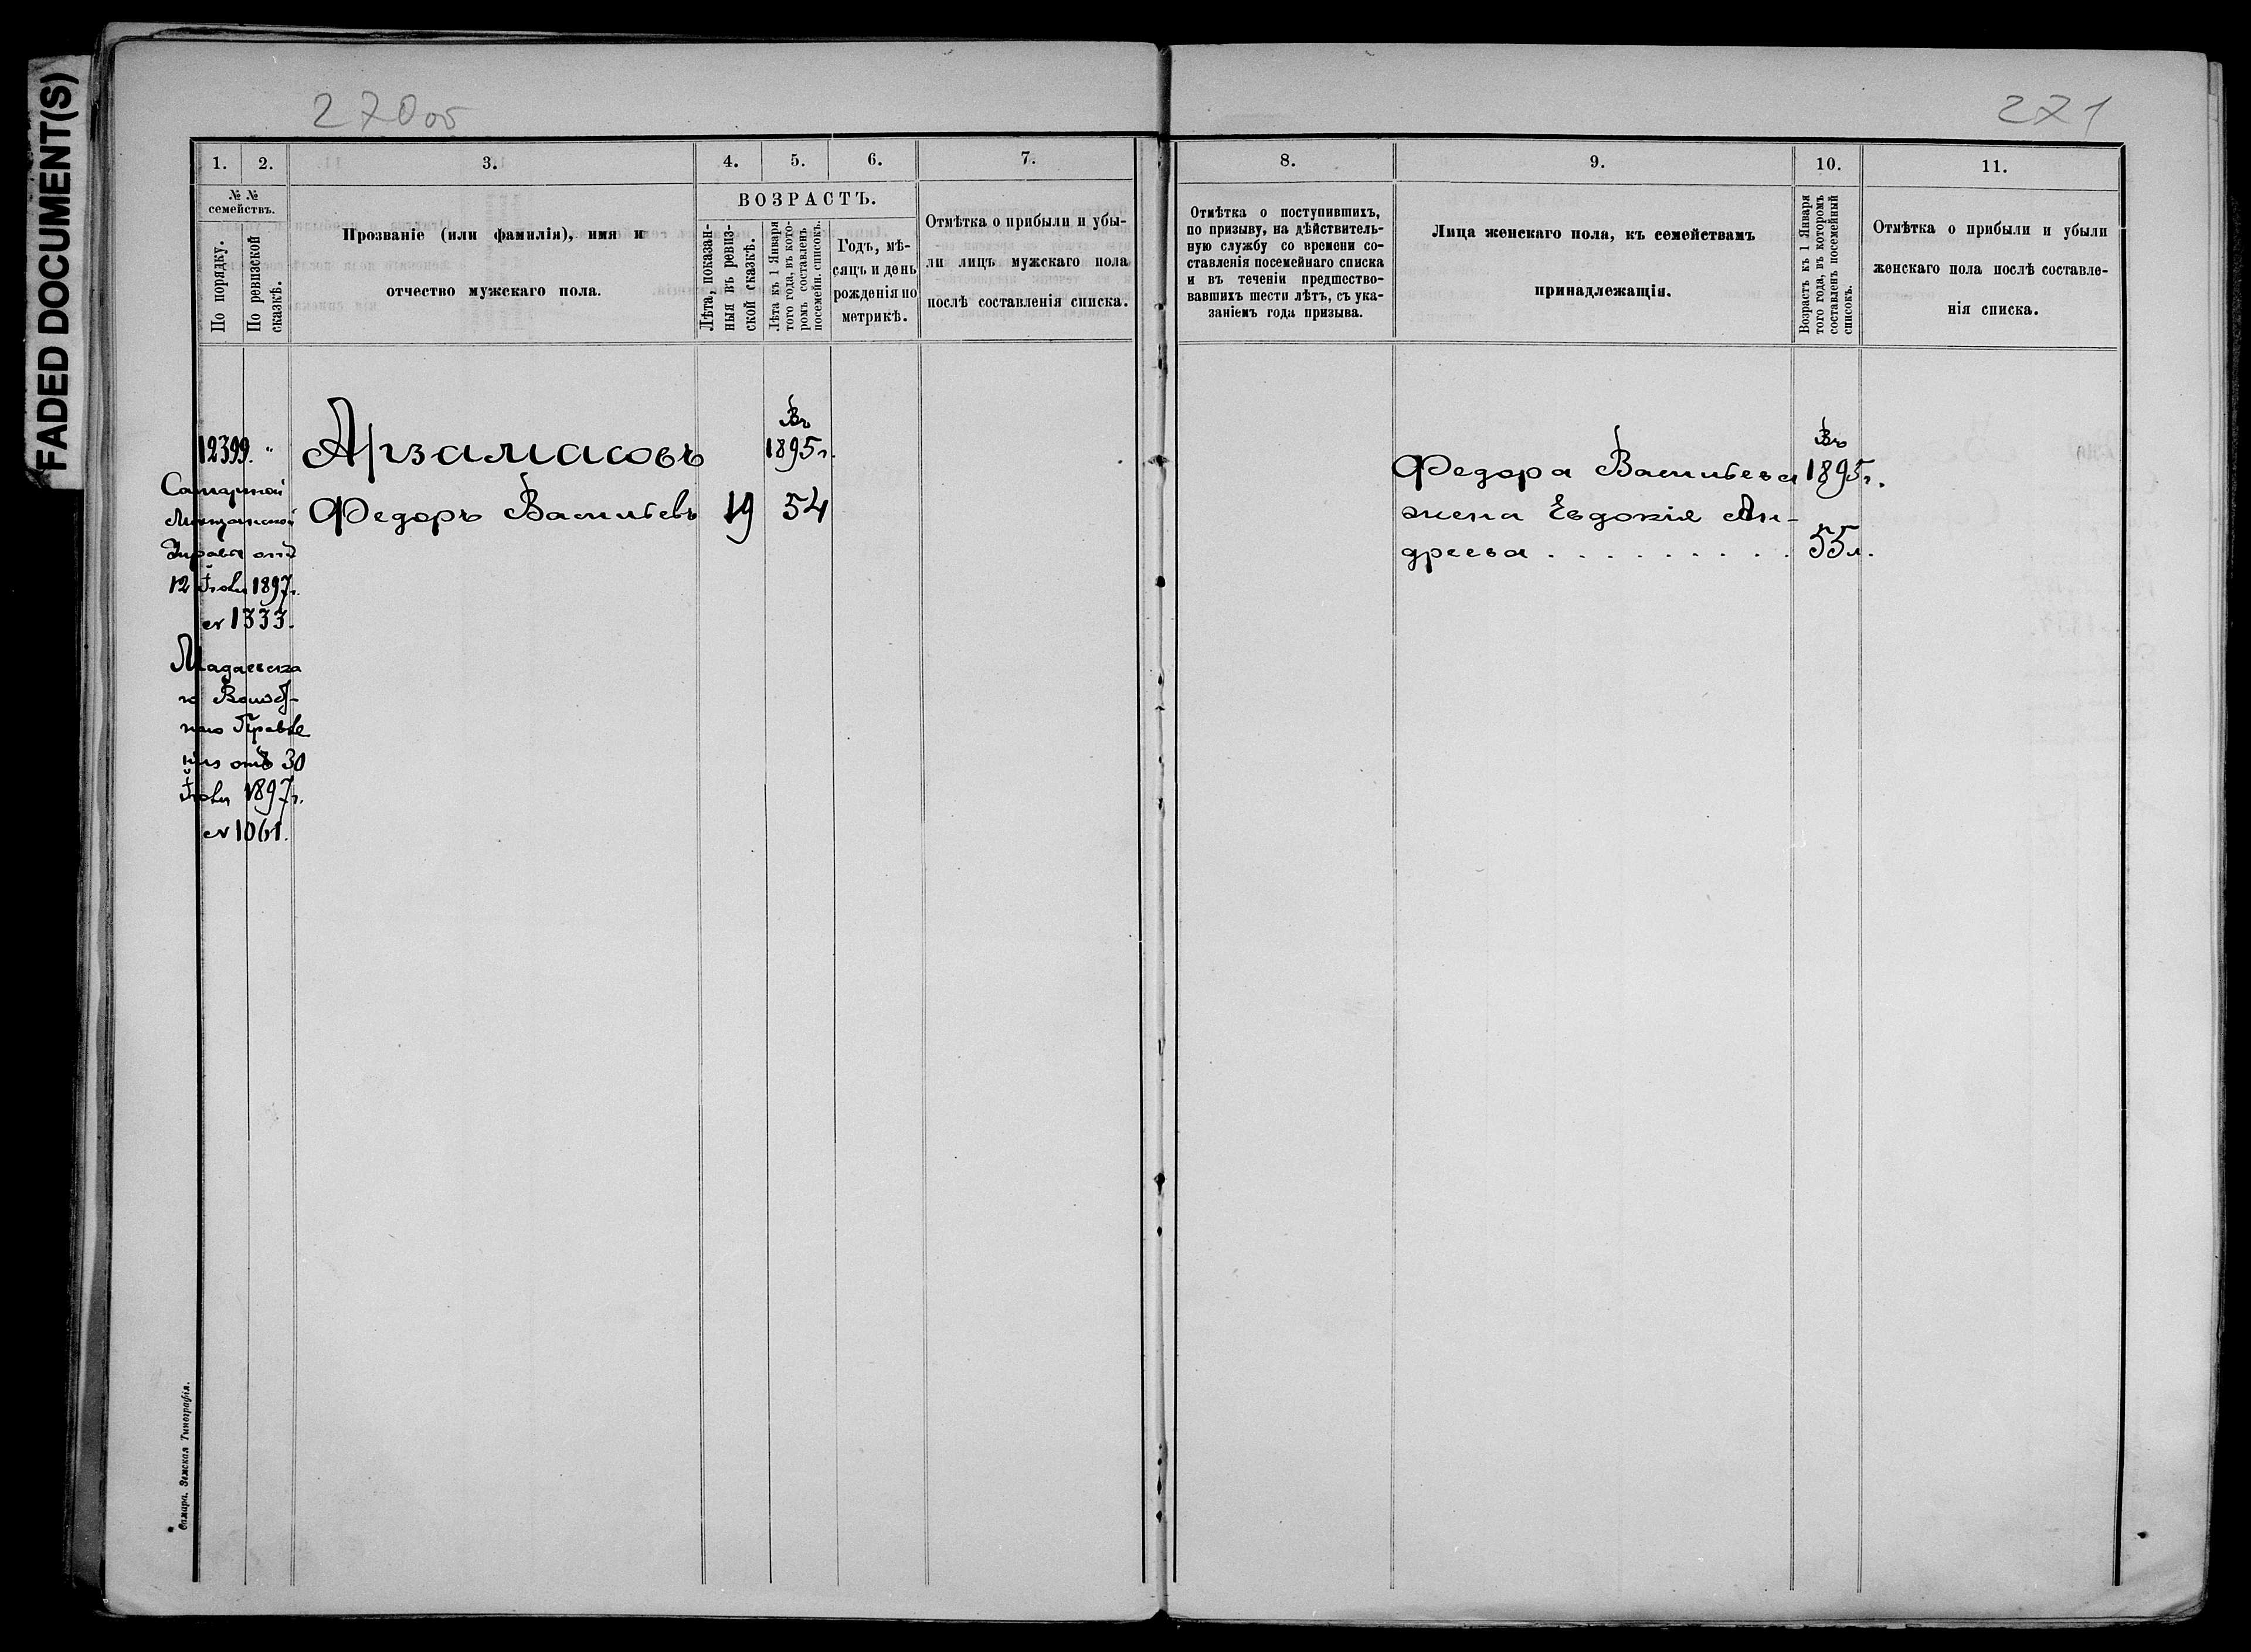 FADED DOCUMENT(S)
270об
1.
2.
3.
4.
5.
6.
7.
№ №
семействъ.
По порядку.
По ревизской
сказкѣ.
Прозваніе (или фамилія), имя и
отчество мужскаго пола.
ВОЗРАСТЪ.
Лѣта, показан-
ныя въ ревиз-
ской сказкѣ.
Лѣта къ 1 Января
того года, въ кото-
ромъ составленъ
посемейн. списокъ.
Годъ, мѣ-
сяцъ и день
рожденія по
метрикѣ.
Отмѣтка о прибыли и убы-
ли лицъ мужскаго пола
послѣ составленія списка.
12399. "
Арзамасовъ
Въ
1895 г.
Ѳедоръ Васильевъ
19
54
Самарской
Мѣщанской
Управы отъ
12 1897 г.
№ 1333.
отъ 30
1897 г.
№ 1061.
Самара. Земская Типографія.
271
8.
9.
10.
11.
Отмѣтка о поступившихъ,
по призыву, на дѣйствитель-
ную службу со времени со-
ставленія посемейнаго списка
и въ теченіи предшество-
вавшихъ шести лѣтъ, съ ука-
заніемъ года призыва.
Лица женскаго пола, къ семействамъ
принадлежащія.
Возрастъ къ 1 Января
того года, въ которомъ
составленъ посемейный
списокъ.
Отмѣтка о прибыли и убыли
женскаго пола послѣ составле-
нія списка.
Въ
Ѳедора Васильева 1895 г.
жена Евдокія Ан-
дреева . . . . . . . . . . 55 л.